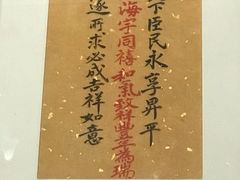 下臣民永享昇平
海宇同禧和氣致祥豐年為瑞
遂所求必成吉祥如意